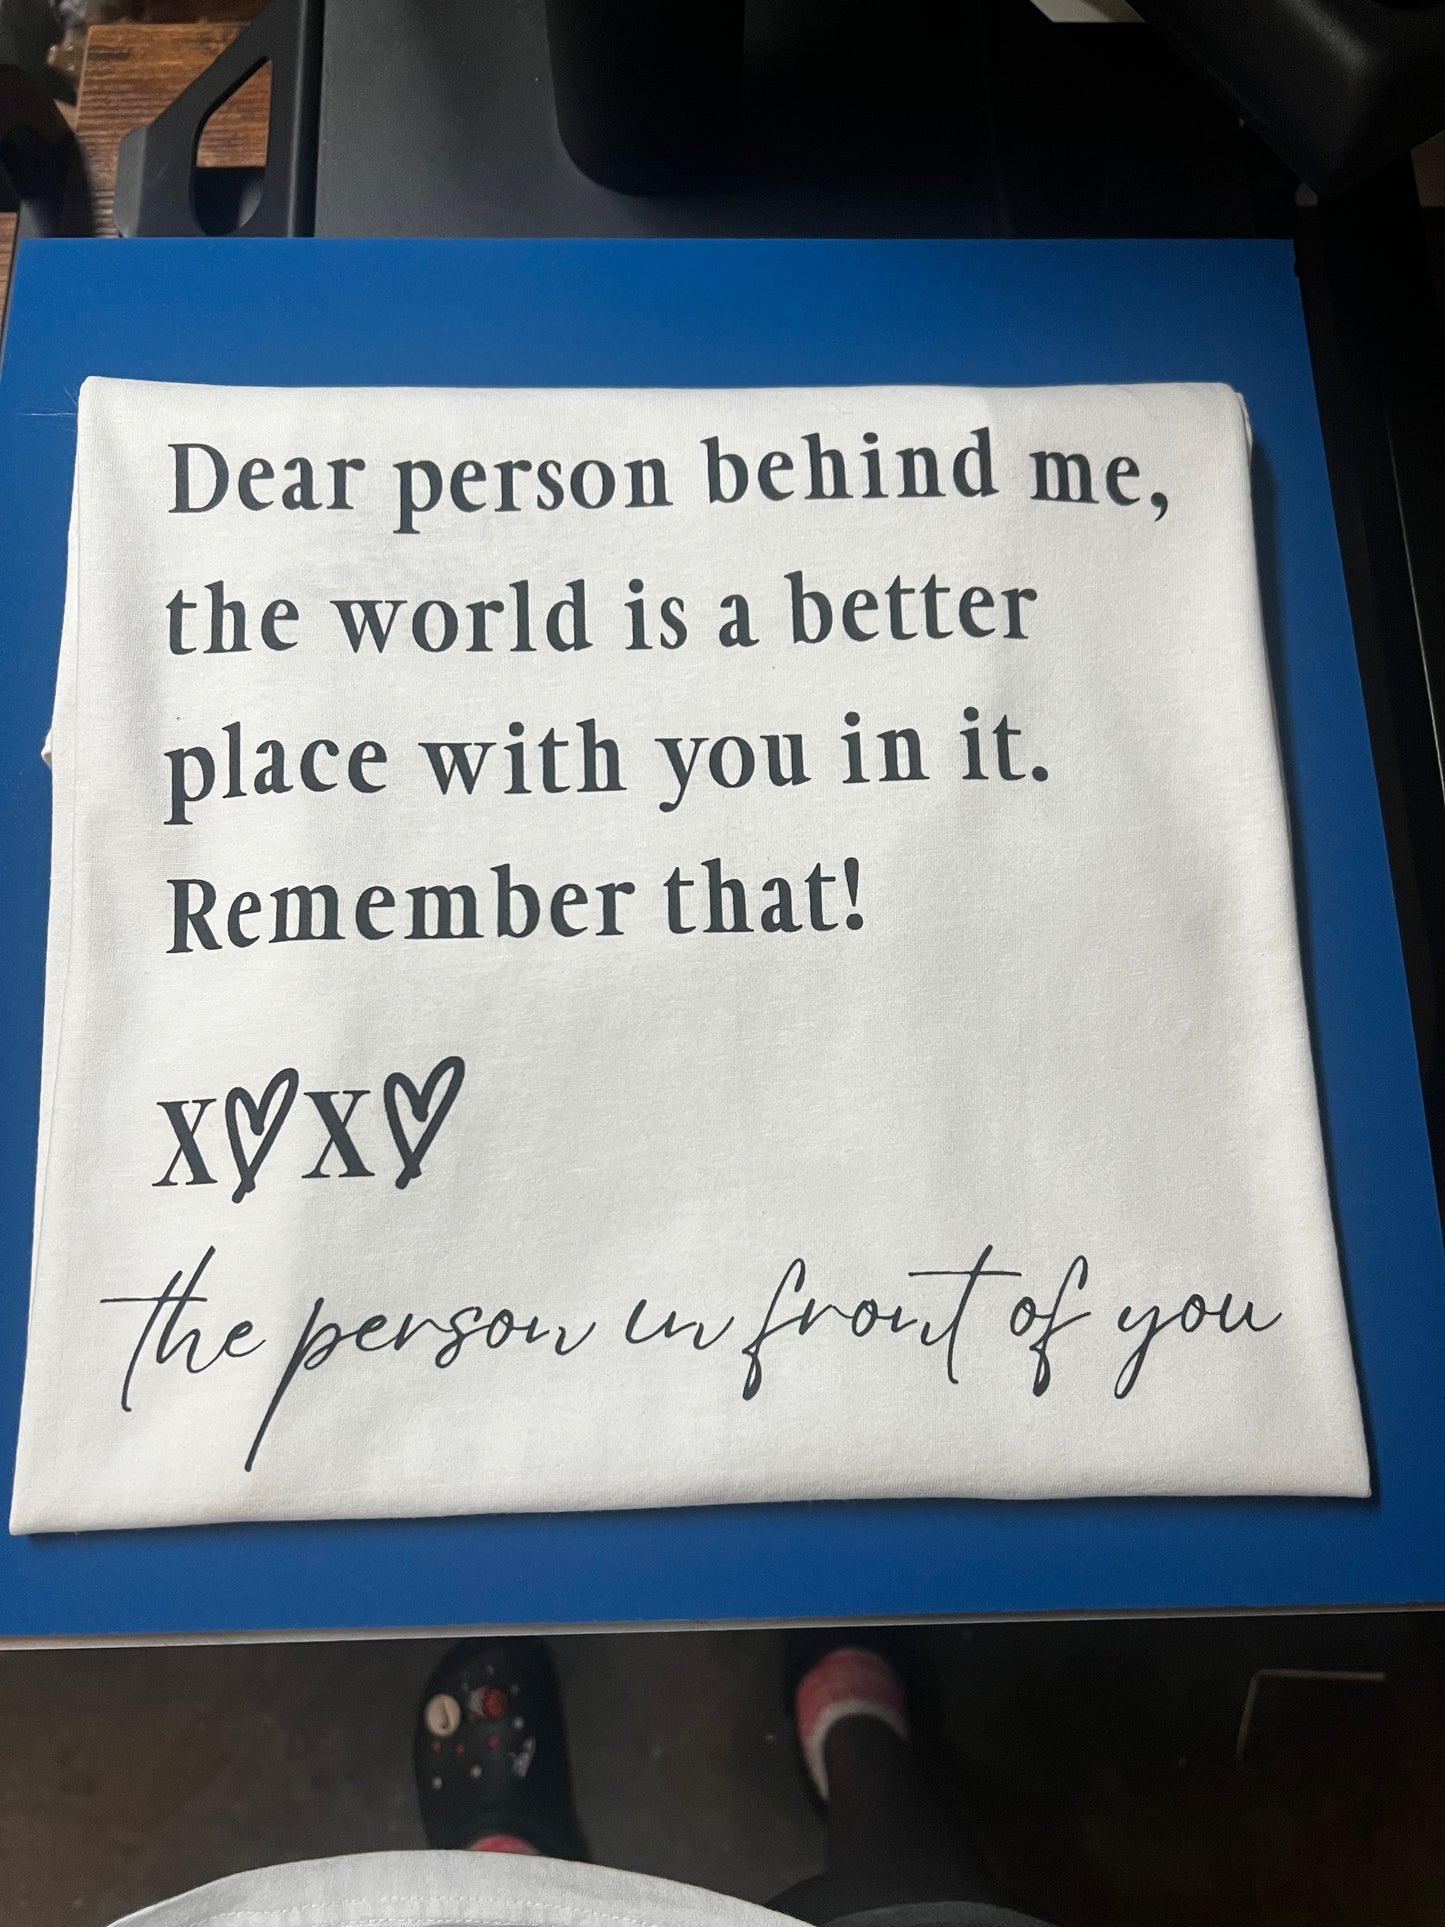 Dear person behind me,
the world is a better
place with you in it.
Remember that!
X♡X♡
the person in front of you